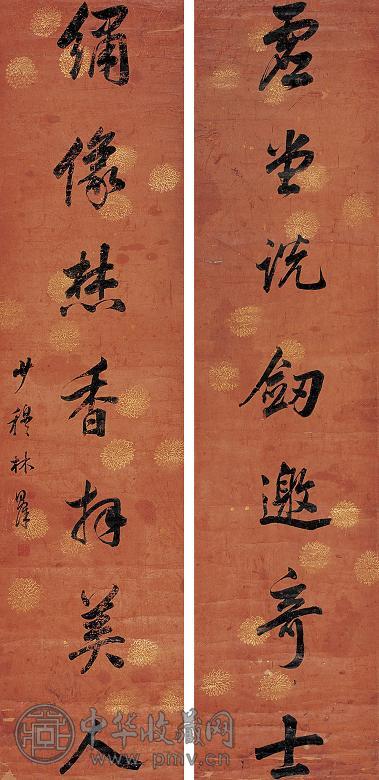 虛堂說劒邀奇士
繡像焚香拜美人
少穆林則徐
中华收藏网
www.pmv.cn